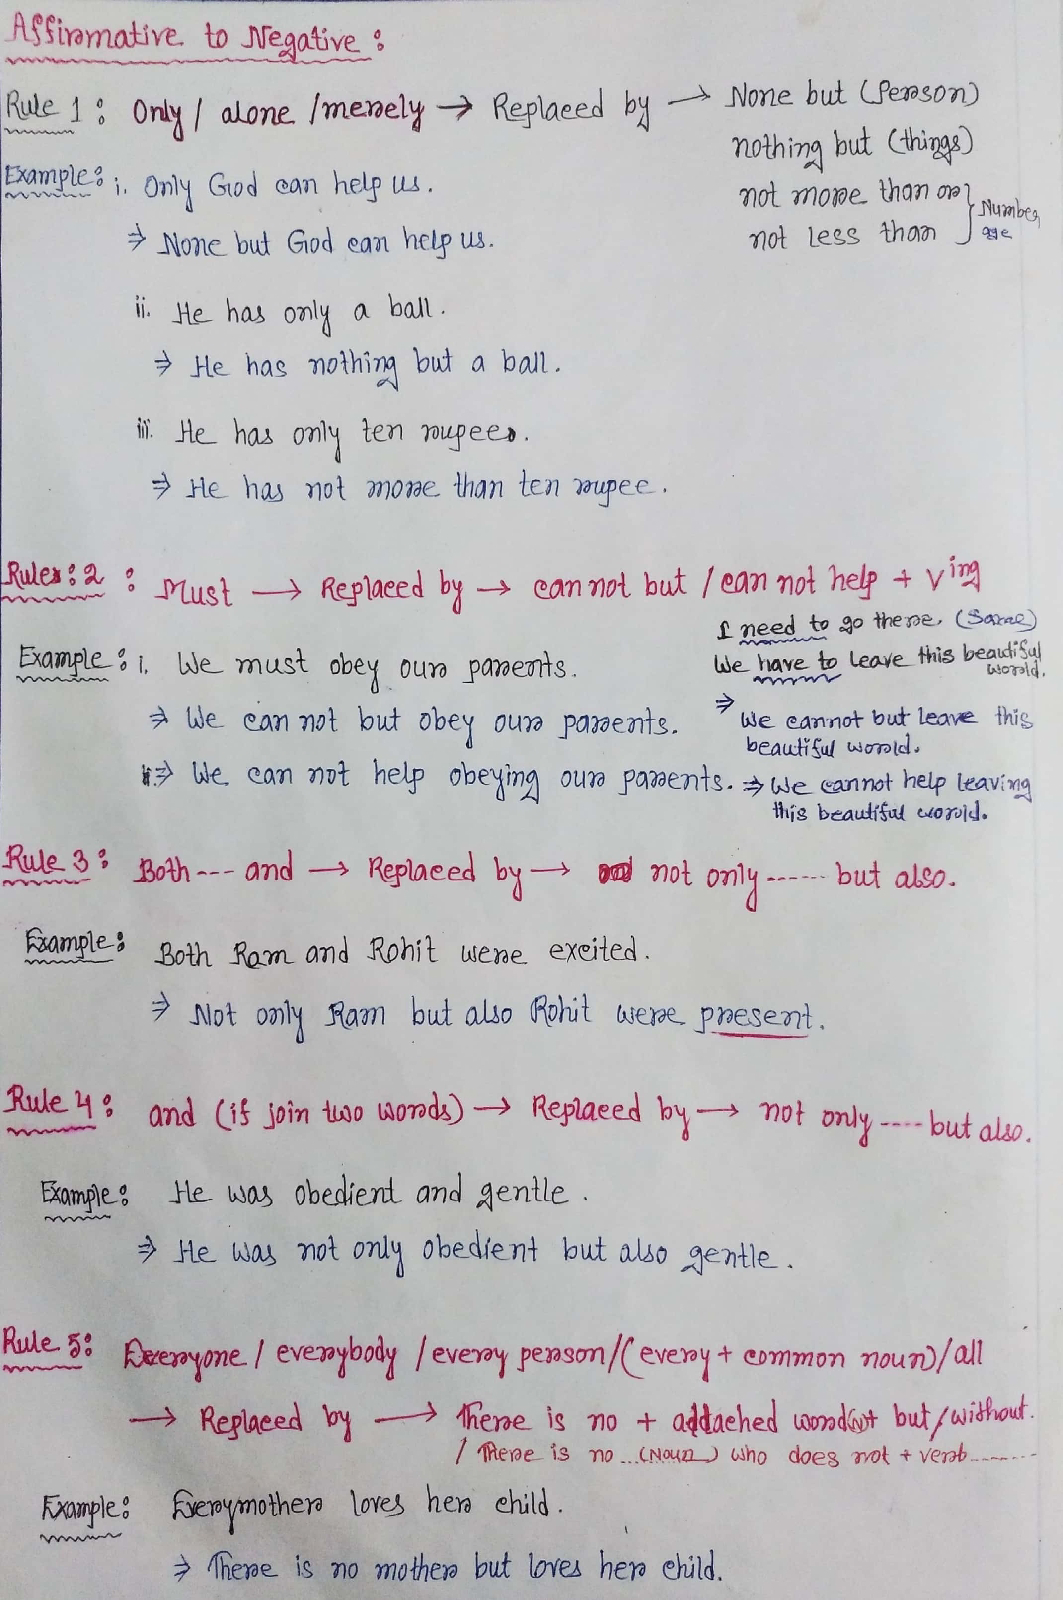 Affirmative to Negative:
Rule 1: Only / alone / merely → Replaced by → None but (Person)
nothing but (things)
Example: i. Only God can help us.
not more than or
not less than } Number, age
⇒ None but God can help us.
ii. He has only a ball.
⇒ He has nothing but a ball.
iii. He has only ten rupees.
⇒ He has not more than ten rupee.
Rules: 2 : Must → Replaced by → can not but / can not help + V ing
I need to go there. (Same)
Example: i. We must obey our parents.
We have to leave this beautiful world.
⇒ We can not but obey our parents.
⇒ We cannot but leave this beautiful world.
⇒ We can not help obeying our parents.
⇒ We cannot help leaving this beautiful world.
Rule 3: Both --- and → Replaced by → not only ------ but also.
Example: Both Ram and Rohit were excited.
⇒ Not only Ram but also Rohit were present.
Rule 4: and (if join two words) → Replaced by → not only ---- but also.
Example: He was obedient and gentle.
⇒ He was not only obedient but also gentle.
Rule 5: Everyone / everybody / every person / (every + common noun) / all
→ Replaced by → There is no + addached word + but / without.
/ There is no ... (Noun) who does not + verb --------
Example: Everymother loves her child.
⇒ There is no mother but loves her child.